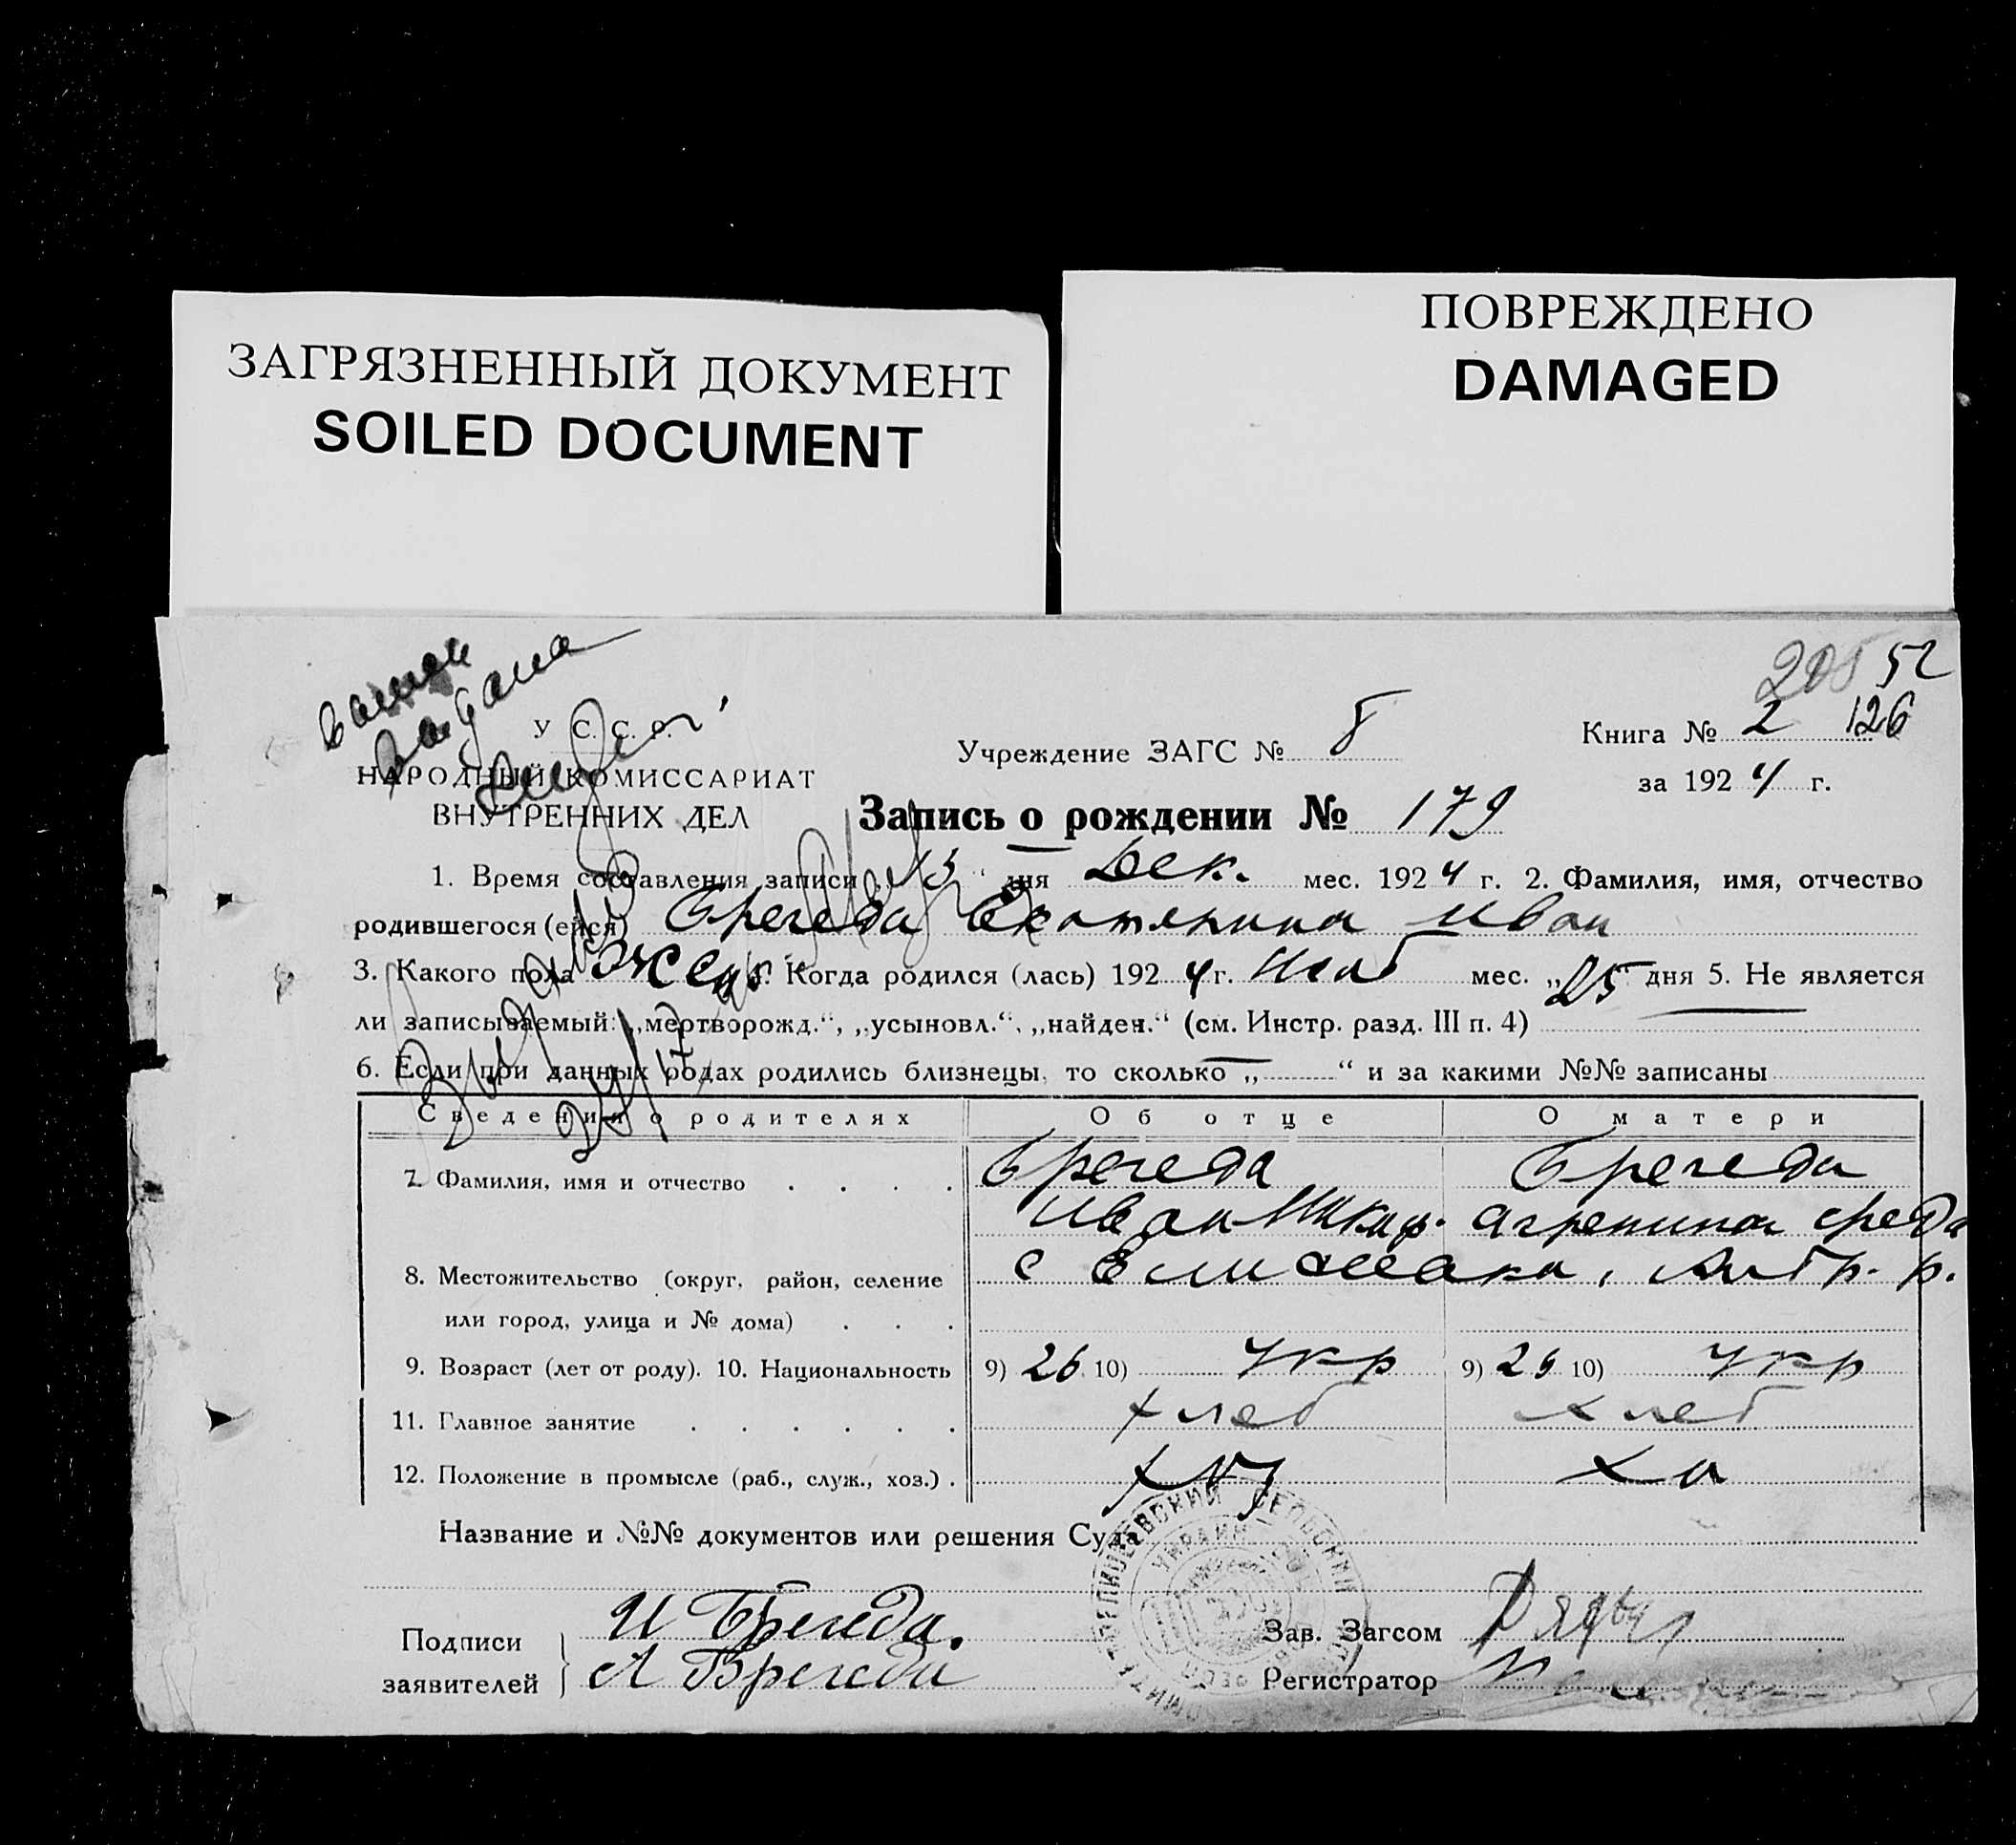 ЗАГРЯЗНЕННЫЙ ДОКУМЕНТ
SOILED DOCUMENT
ПОВРЕЖДЕНО
DAMAGED
52
У. С. С. Р.
НАРОДНЫЙ КОМИССАРИАТ
ВНУТРЕННИХ ДЕЛ
Учреждение ЗАГС № 8
Книга № 2 126
за 1924 г.
Запись о рождении № 179
1. Время составления записи „15“ дня Дек. мес. 1924 г. 2. Фамилия, имя, отчество
родившегося (ейся) Брегеда Екатерина Иван
3. Какого пола жен 4. Когда родился (лась) 1924 г. мес. „25“ дня 5. Не является
ли записываемый: „мертворожд.“, „усыновл.“, „найден.“ (см. Инстр. разд. III п. 4)
6. Если при данных родах родились близнецы, то сколько „—“ и за какими №№ записаны
Сведения о родителях Об отце О матери
7. Фамилия, имя и отчество Брегеда Брегеда
Иван Никиф. Агрепина
8. Местожительство (округ, район, селение с
или город, улица и № дома)
9. Возраст (лет от роду). 10. Национальность 9) 26 10) укр 9) 26 10) укр
11. Главное занятие хлеб хлеб
12. Положение в промысле (раб., служ., хоз.) хоз
Название и №№ документов или решения Суда
Подписи заявителей
И Брегеда.
А Брегеда
Зав. Загсом
Регистратор